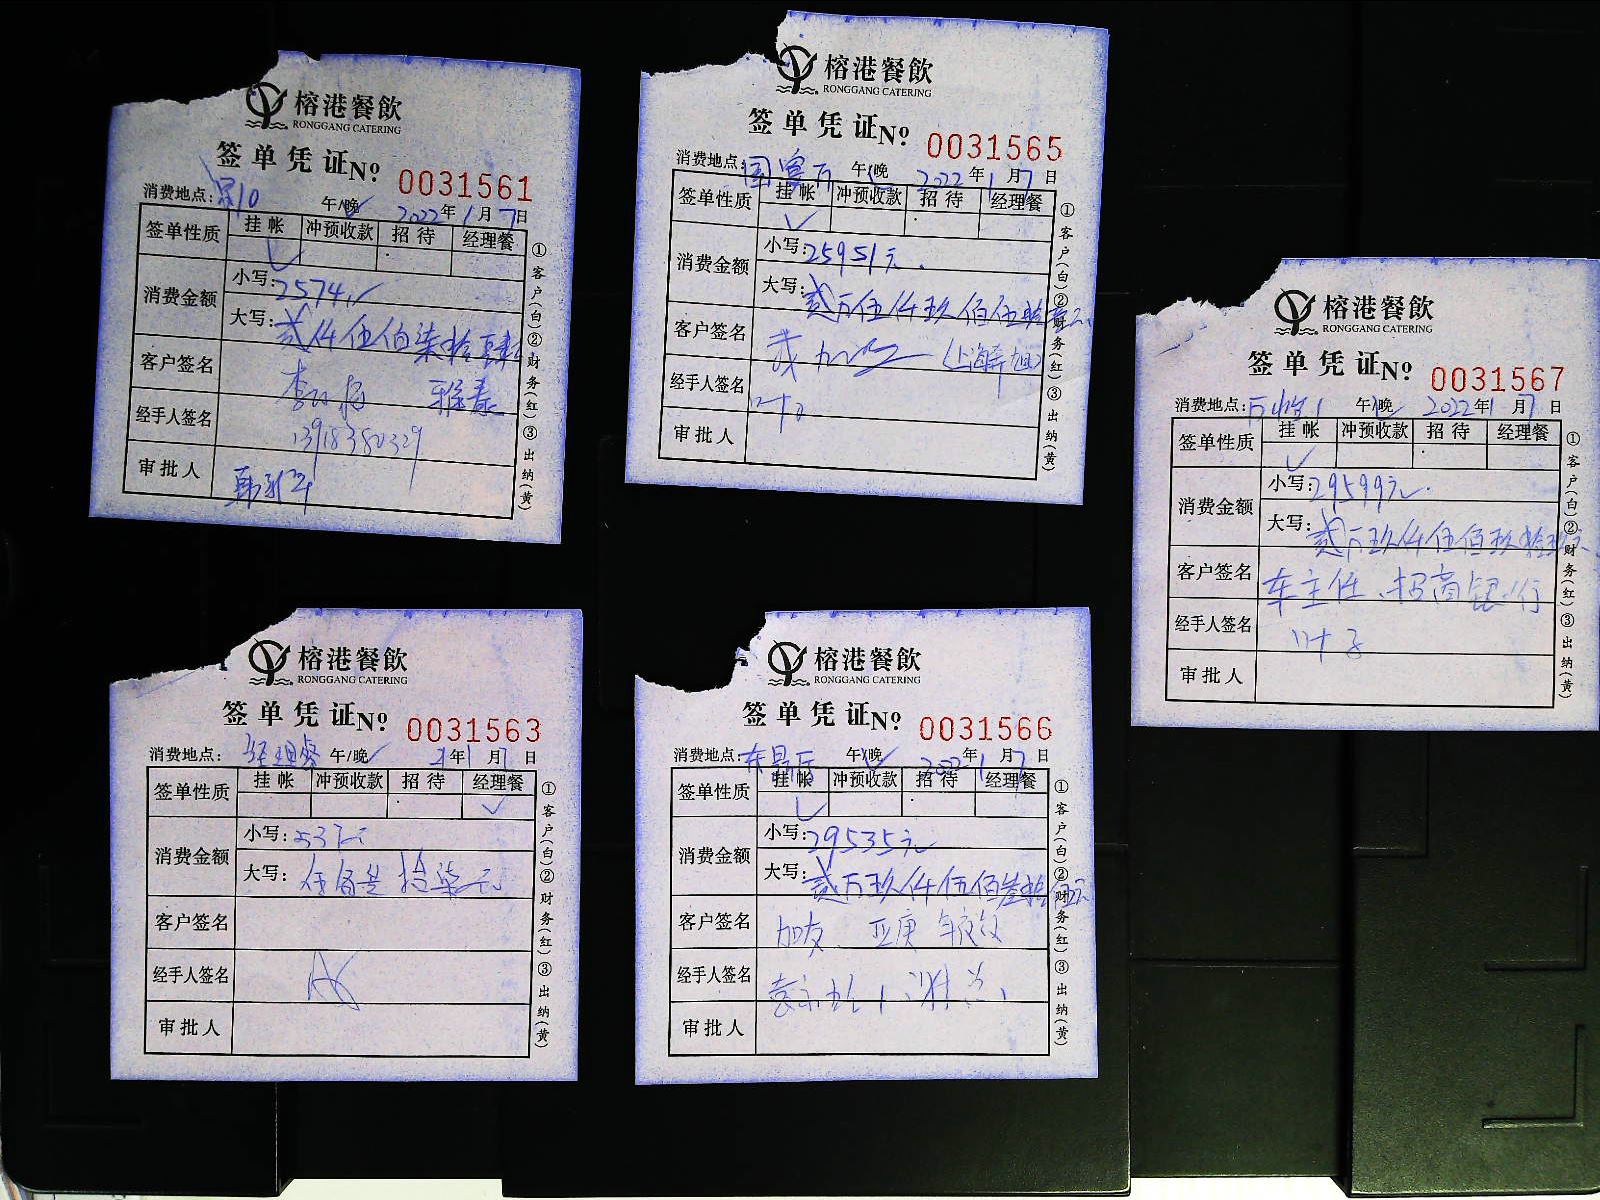 榕港餐飲
RONGGANG CATERING
签单凭证 № 0031561
消费地点: 午/晚 2022年1月7日
签单性质 挂帐 冲预收款 招待 经理餐
消费金额 小写: 2574
大写: 贰仟伍佰柒拾肆
客户签名
经手人签名 13918380329
审批人
①客户(白)②财务(红)③出纳(黄)
榕港餐飲
RONGGANG CATERING
签单凭证 № 0031565
消费地点: 国宴厅 午/晚 2022年1月7日
签单性质 挂帐 冲预收款 招待 经理餐
消费金额 小写: 25951元
大写: 贰万伍仟玖佰伍拾壹元
客户签名
经手人签名 叶子
审批人
①客户(白)②财务(红)③出纳(黄)
榕港餐飲
RONGGANG CATERING
签单凭证 № 0031567
消费地点: 午/晚 2022年1月7日
签单性质 挂帐 冲预收款 招待 经理餐
消费金额 小写: 29599元
大写: 贰万玖仟伍佰玖拾玖元
客户签名 车主任、招商银行
经手人签名 叶子
审批人
①客户(白)②财务(红)③出纳(黄)
榕港餐飲
RONGGANG CATERING
签单凭证 № 0031563
消费地点: 经理餐 午/晚 年1月7日
签单性质 挂帐 冲预收款 招待 经理餐
消费金额 小写: 537元
大写: 伍佰叁拾柒元
客户签名
经手人签名
审批人
①客户(白)②财务(红)③出纳(黄)
榕港餐飲
RONGGANG CATERING
签单凭证 № 0031566
消费地点: 午/晚 2022年1月7日
签单性质 挂帐 冲预收款 招待 经理餐
消费金额 小写: 29535元
大写: 贰万玖仟伍佰叁拾伍元
客户签名
经手人签名
审批人
①客户(白)②财务(红)③出纳(黄)